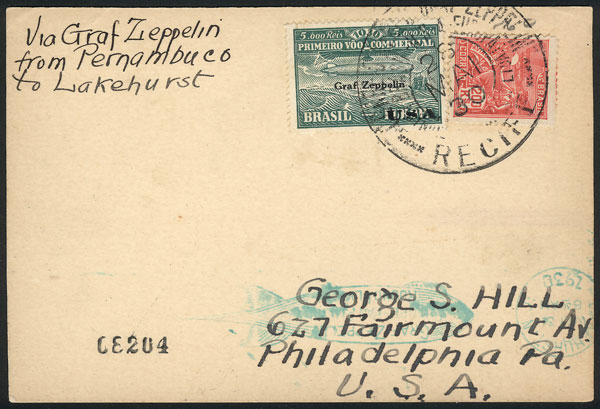 Via Graf Zeppelin
from Pernambuco
to Lakehurst
5.000 Reis 1930 5.000 Reis
PRIMEIRO VÔO COMMERCIAL
Graf Zeppelin
BRASIL
U.S.A.
BRASIL
RECIFE
George S. HILL
627 Fairmount Av.
Philadelphia Pa.
U. S. A.
C3204
1930